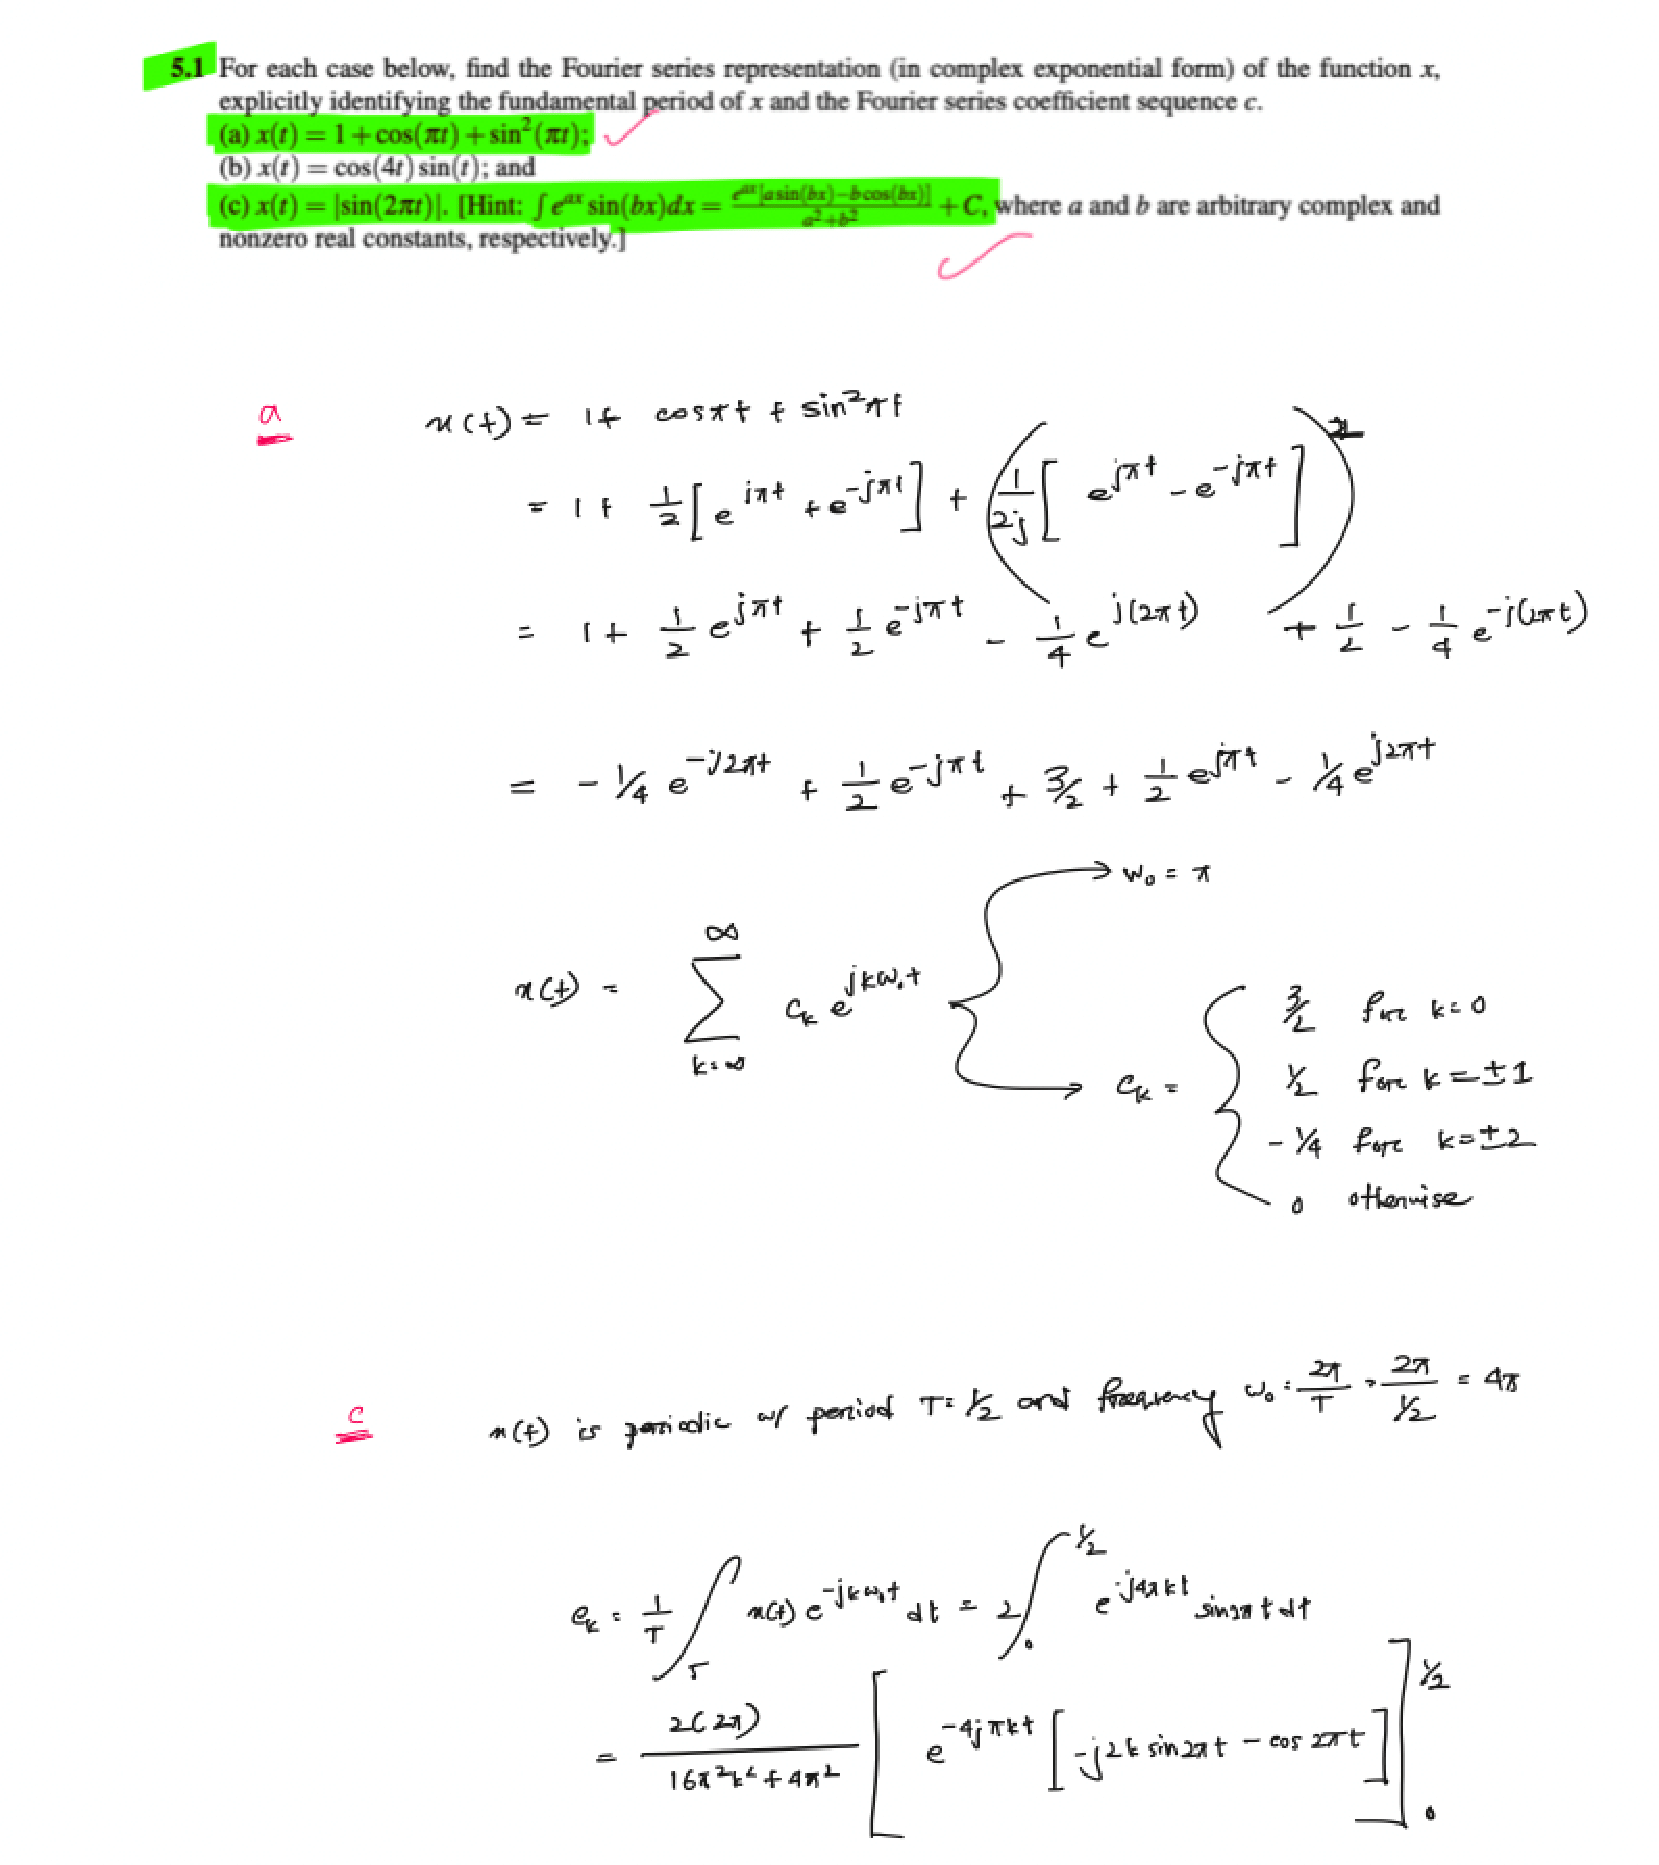 5.1 For each case below, find the Fourier series representation (in complex exponential form) of the function x,
explicitly identifying the fundamental period of x and the Fourier series coefficient sequence c.
(a) x(t) = 1 + cos(πt) + sin²(πt);
(b) x(t) = cos(4t) sin(t); and
(c) x(t) = |sin(2πt)|. [Hint: ∫ e^{ax} sin(bx)dx = e^{ax}[a sin(bx)−b cos(bx)] / a²+b² + C, where a and b are arbitrary complex and
nonzero real constants, respectively.]
a
x(t) = 1+ cosπt + sin²πt
= 1+ 1/2 [e^{jπt} + e^{-jπt}] + (1/2j [e^{jπt} - e^{-jπt}])²
= 1+ 1/2 e^{jπt} + 1/2 e^{-jπt} - 1/4 e^{j(2πt)} + 1/2 - 1/4 e^{-j(2πt)}
= - 1/4 e^{-j2πt} + 1/2 e^{-jπt} + 3/2 + 1/2 e^{jπt} - 1/4 e^{j2πt}
→ w₀ = π
x(t) = ∑_{k=∞}^{∞} c_k e^{jkω₀t}
→ c_k = { 3/2 for k=0
1/2 for k=±1
- 1/4 for k=±2
0 otherwise
c
x(t) is periodic w/ period T= 1/2 and frequency ω₀ = 2π/T = 2π/(1/2) = 4π
c_k = 1/T ∫_T x(t) e^{-jkω₀t} dt = 2 ∫_0^{1/2} e^{-j4πkt} sin2πt dt
= 2(2π) / 16π²k² + 4π² [ e^{-4jπkt} [-j2k sin2πt - cos 2πt] ]_0^{1/2}